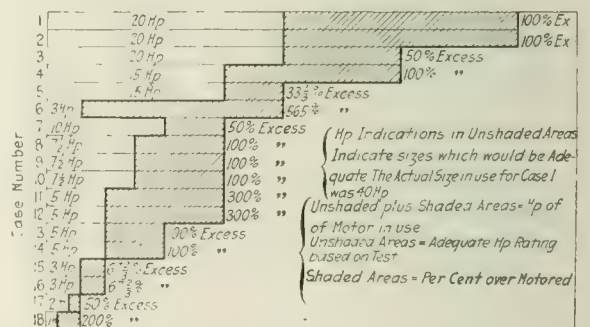 1 20 Hp 100% Ex
2 20 Hp 100% Ex
3 20 Hp 50% Excess
4 15 Hp 100% "
5 15 Hp 33 1/3 % Excess
6 3 Hp 565 % "
7 10 Hp 50% Excess
8 7 1/2 Hp 100% "
9 7 1/2 Hp 100% "
10 7 1/2 Hp 100% "
11 5 Hp 300% "
12 5 Hp 300% "
13 5 Hp 100% Excess
14 5 Hp 100% "
15 3 Hp 6 2/3 % Excess
16 3 Hp 6 2/3 % "
17 2 50% Excess
18 200% "
Case Number
Hp Indications in Unshaded Areas
Indicate sizes which would be Ade-
quate The Actual Size in use for Case 1
was 40 Hp
Unshaded plus Shaded Areas = Hp of
of Motor in use
Unshaded Areas = Adequate Hp Rating
based on Test
Shaded Areas = Per Cent over Motored